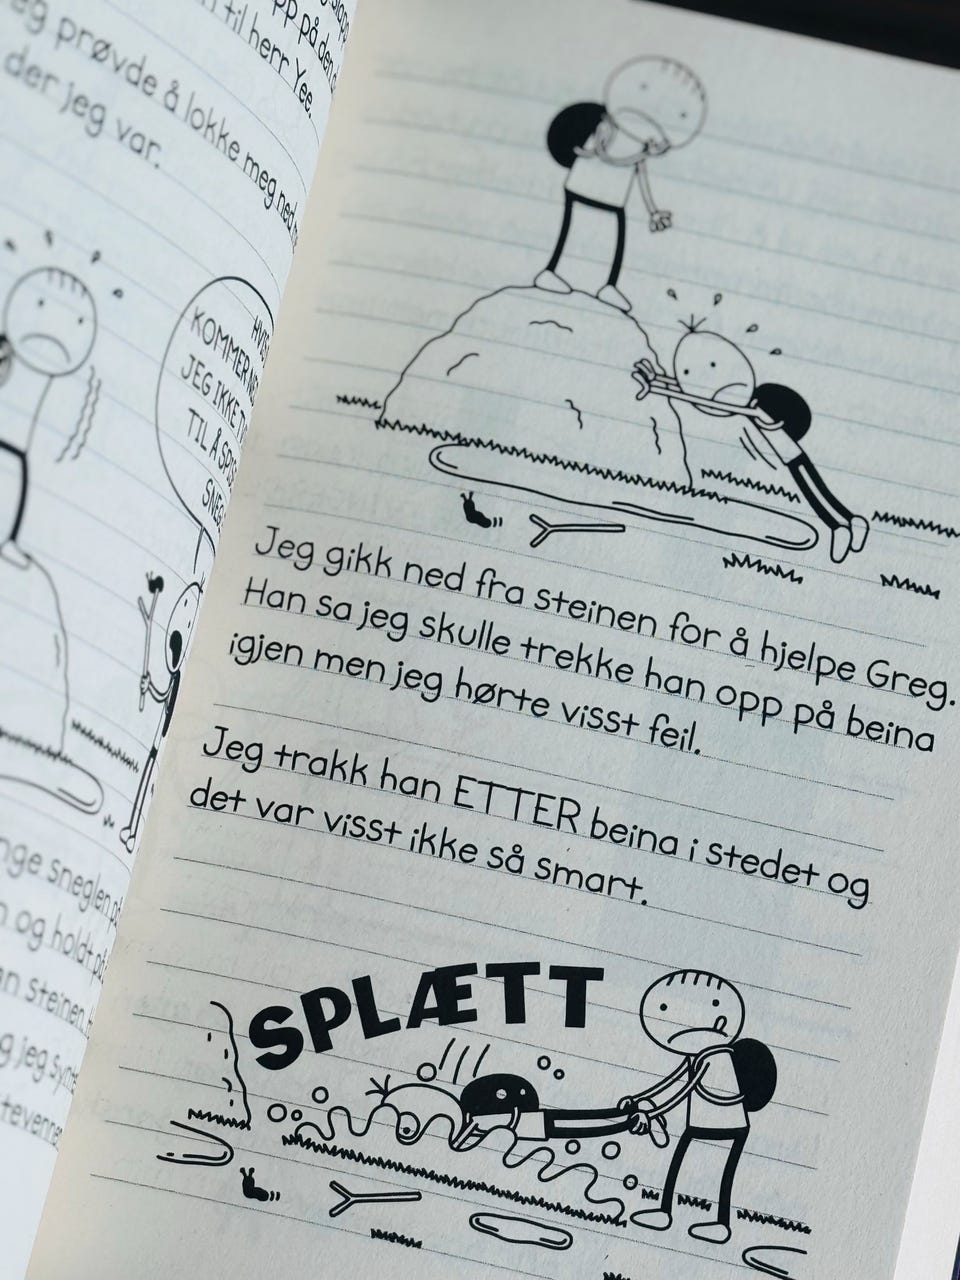 til herr Yee.
prøvde å lokke meg ned
der jeg var.
KOMMER
JEG IKKE
TIL Å
sneglen
og holdt
steinen.
jeg
Jeg gikk ned fra steinen for å hjelpe Greg.
Han sa jeg skulle trekke han opp på beina
igjen men jeg hørte visst feil.
Jeg trakk han ETTER beina i stedet og
det var visst ikke så smart.
SPLÆTT